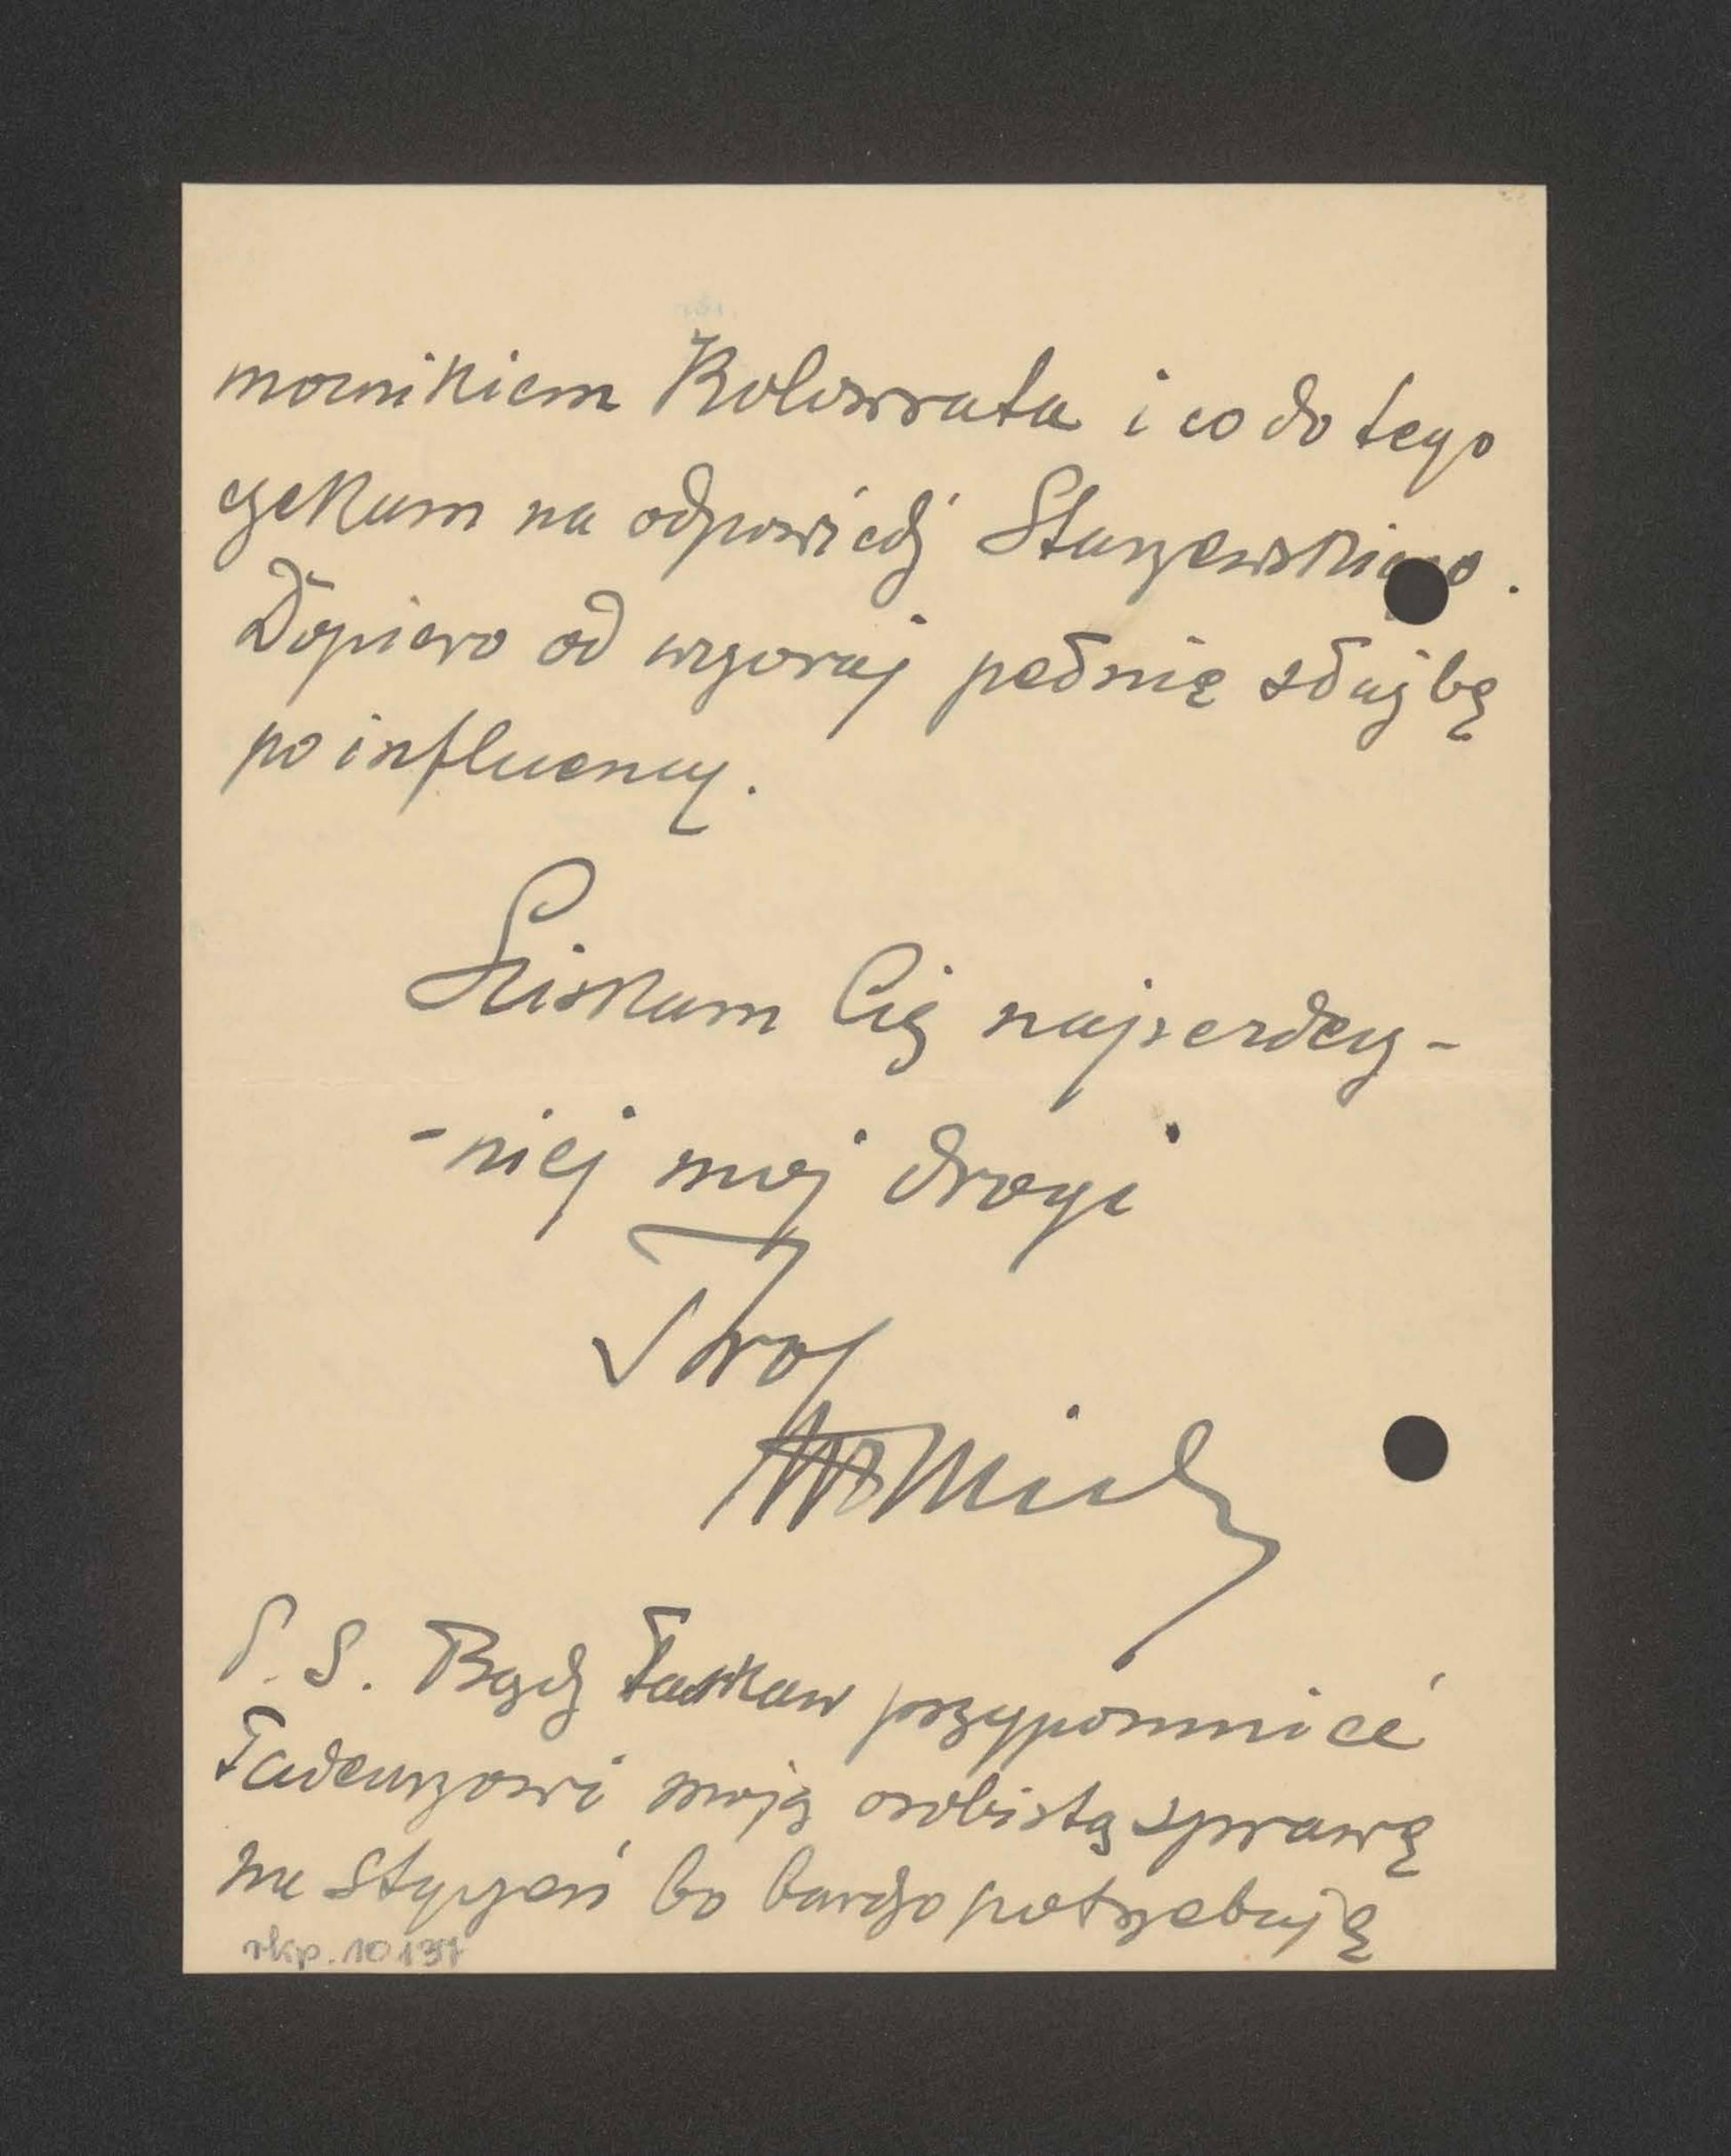 mocnikiem Kolowrata i co do tego
czekam na odpowiedź Staszewskiego.
Dopiero od wczoraj pełnię służbę
po influency.
Sciskam Cię najserdecz-
-niej moj drogi
Twoj
P. S. Bądź łaskaw przypomnieć
Tadeuszowi moją osobistą sprawę
na styczeń bo bardzo potrzebuję
rkp. 10137